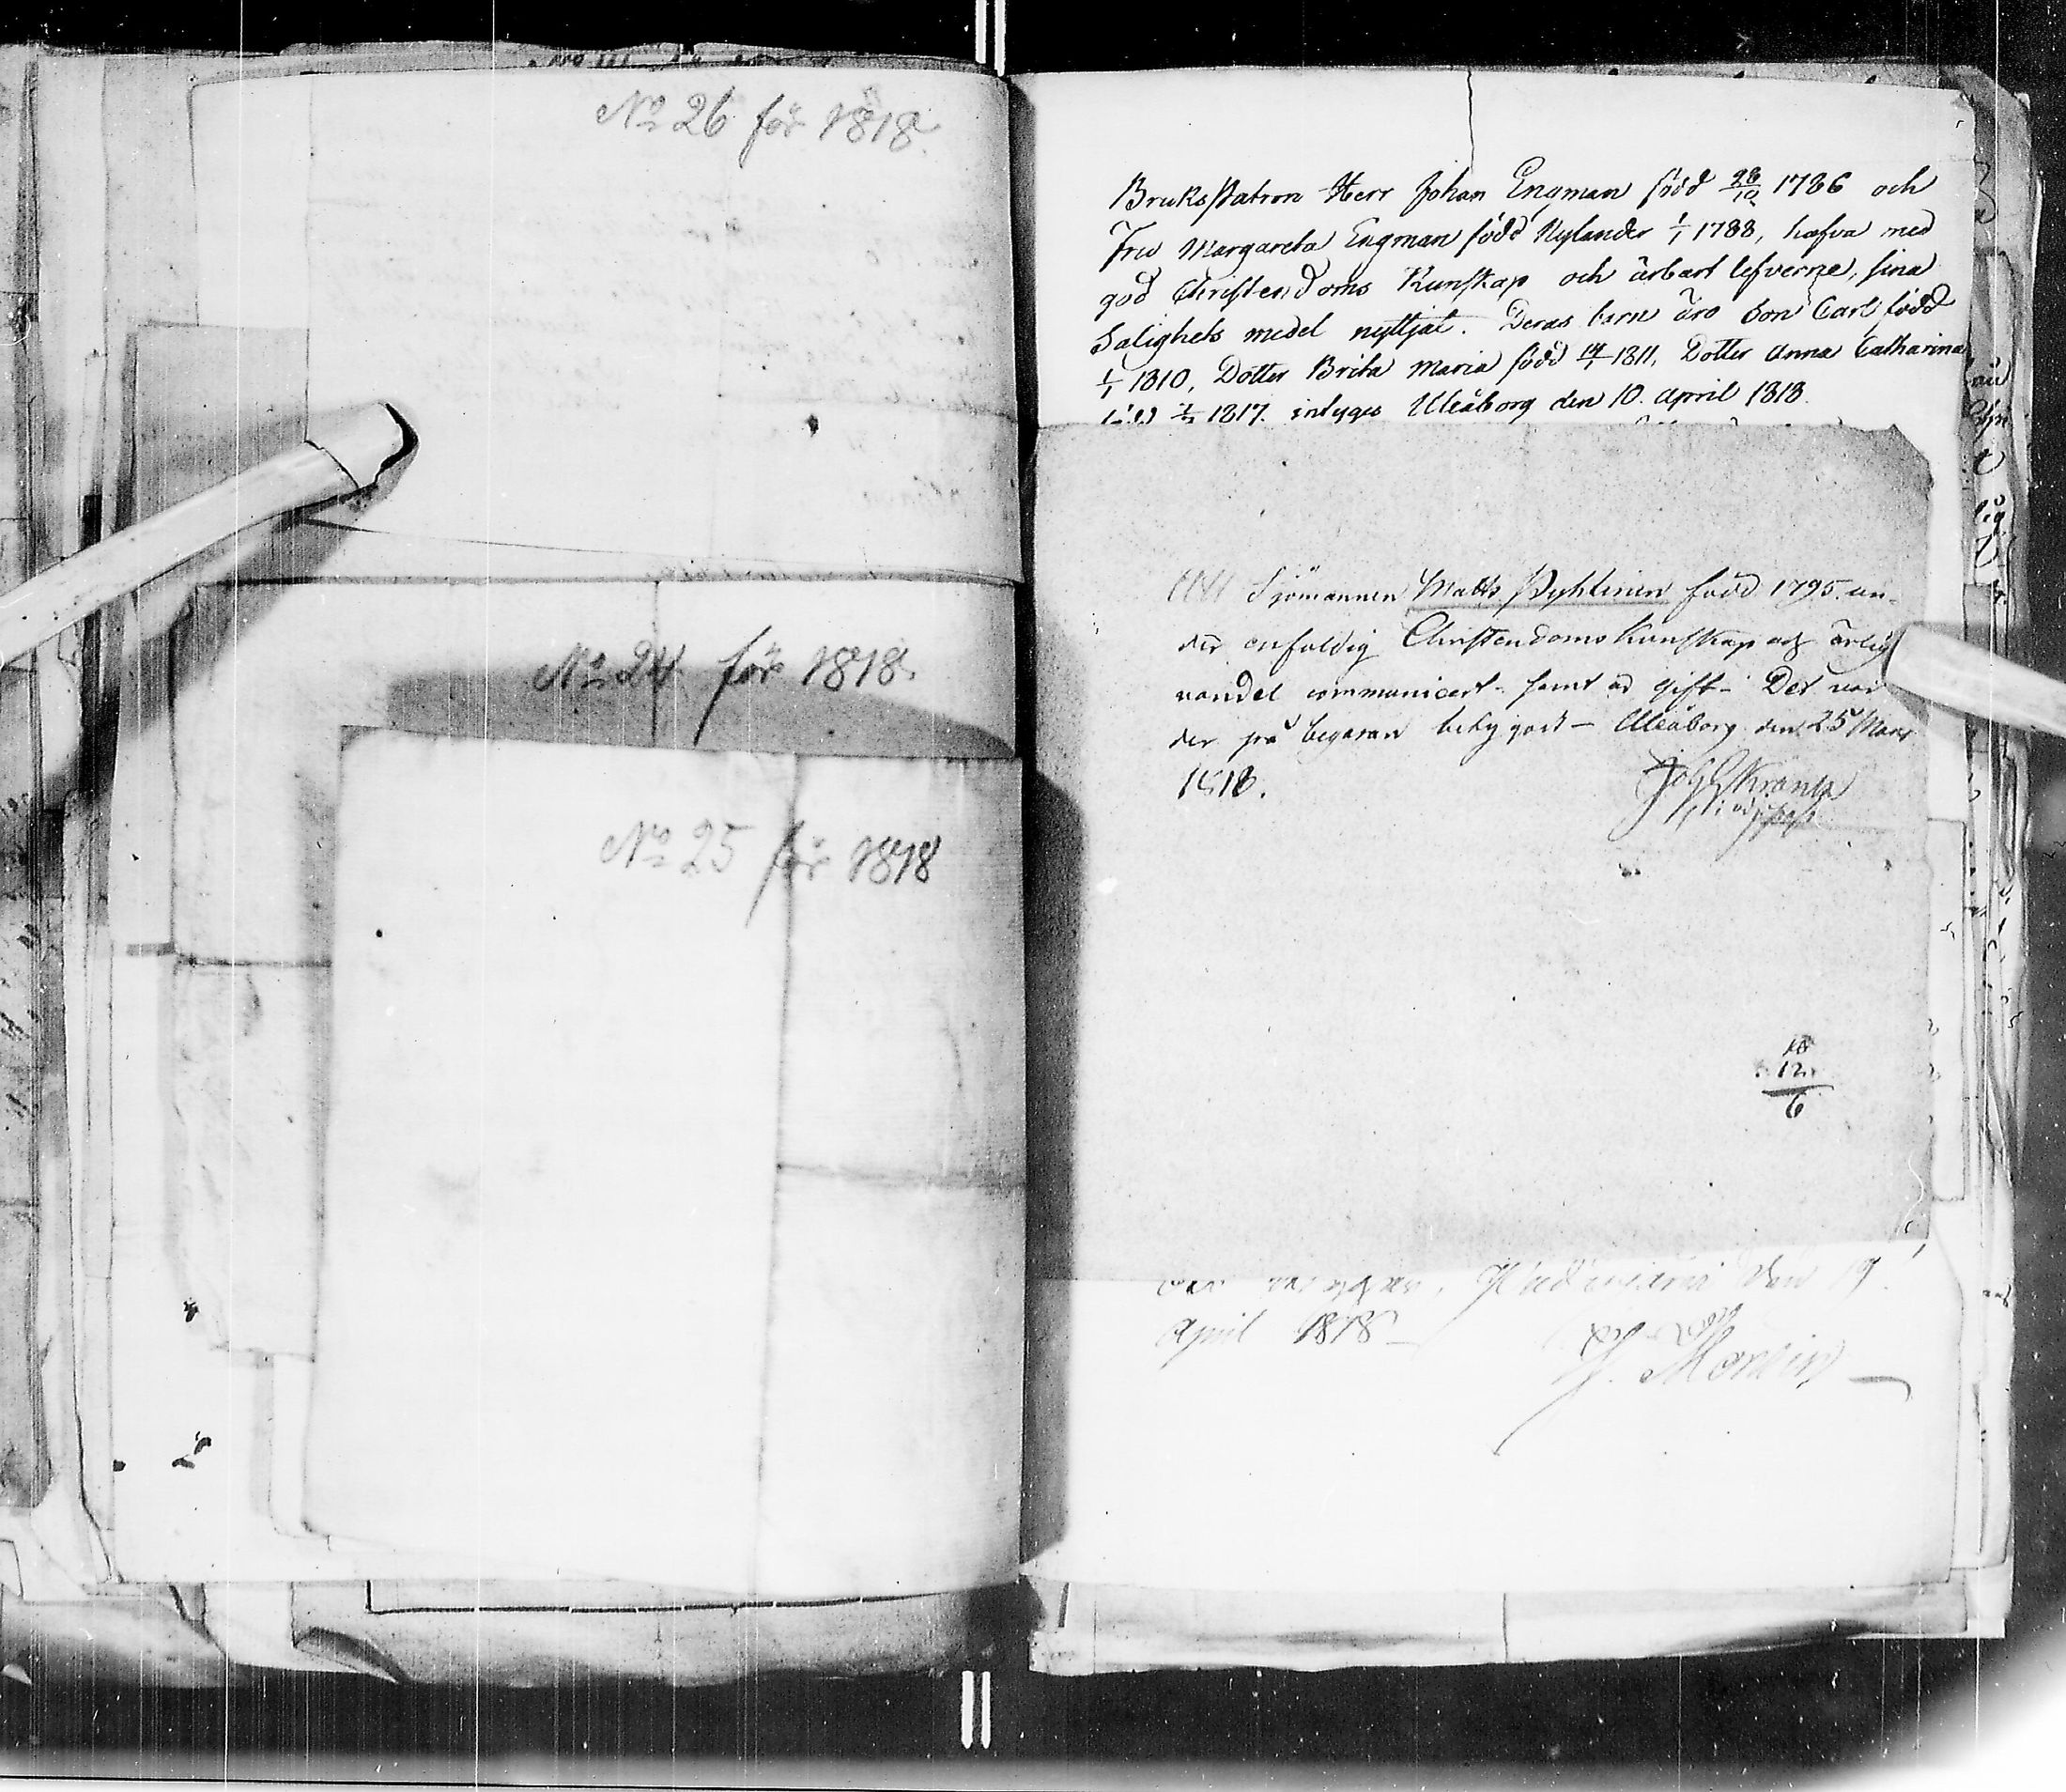 No 26 för 1818.
No 24 för 1818.
No 25 för 1818
BruksPatron Herr Johan Engman född 28/10 1786 och
Fru Margareta Engman född Nylander 1/1 1788, hafva med
god Christendoms Kunskap och ärbart lefverne, sina
Salighets medel nyttjat. Deras barn äro Son Carl född
1/1 1810, Dotter Brita Maria född 14/1 1811, Dotter Anna Catharina
född 1817. intygas Uleåborg den 10. April 1818.
Att Sjömannen Matts Pyhtinen född 1795. un-
der enfaldig Christendoms Kunskap och ärlig
vandel communicert - samt är gift - Det var
der på begäran betygadt - Uleåborg den 25 Mars
1818.
18
12.
6
den 19
April 1818